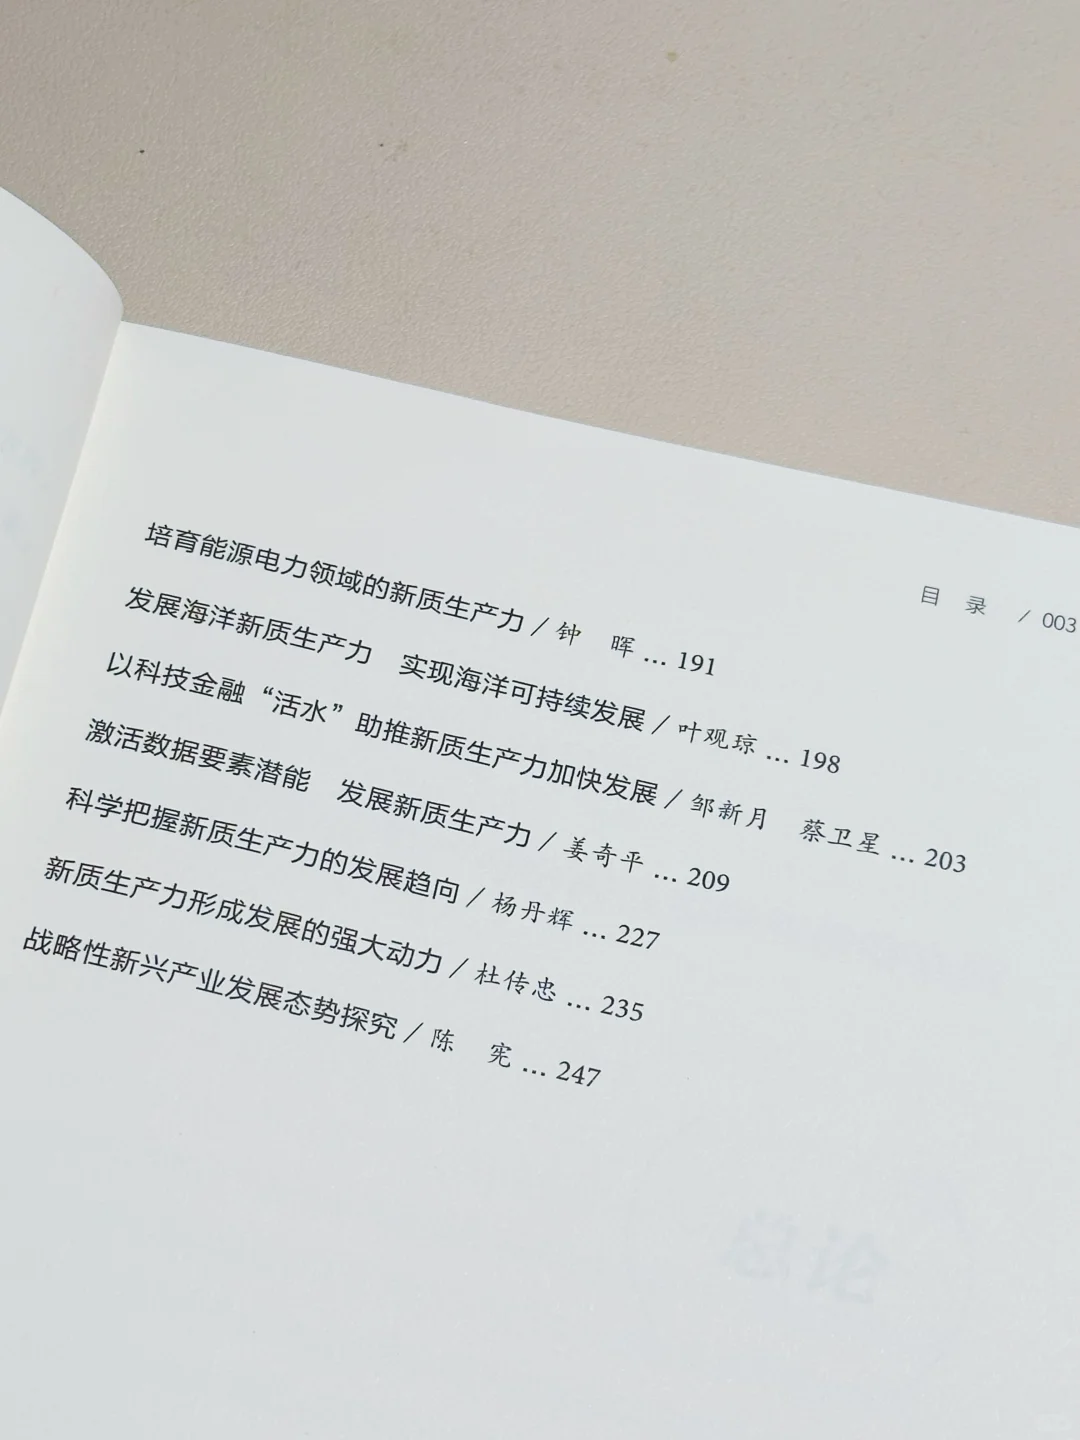 目 录 / 003
培育能源电力领域的新质生产力 / 钟 晖 … 191
发展海洋新质生产力 实现海洋可持续发展 / 叶观琼 … 198
以科技金融“活水”助推新质生产力加快发展 / 邹新月 蔡卫星 … 203
激活数据要素潜能 发展新质生产力 / 姜奇平 … 209
科学把握新质生产力的发展趋向 / 杨丹辉 … 227
新质生产力形成发展的强大动力 / 杜传忠 … 235
战略性新兴产业发展态势探究 / 陈 宪 … 247
总论